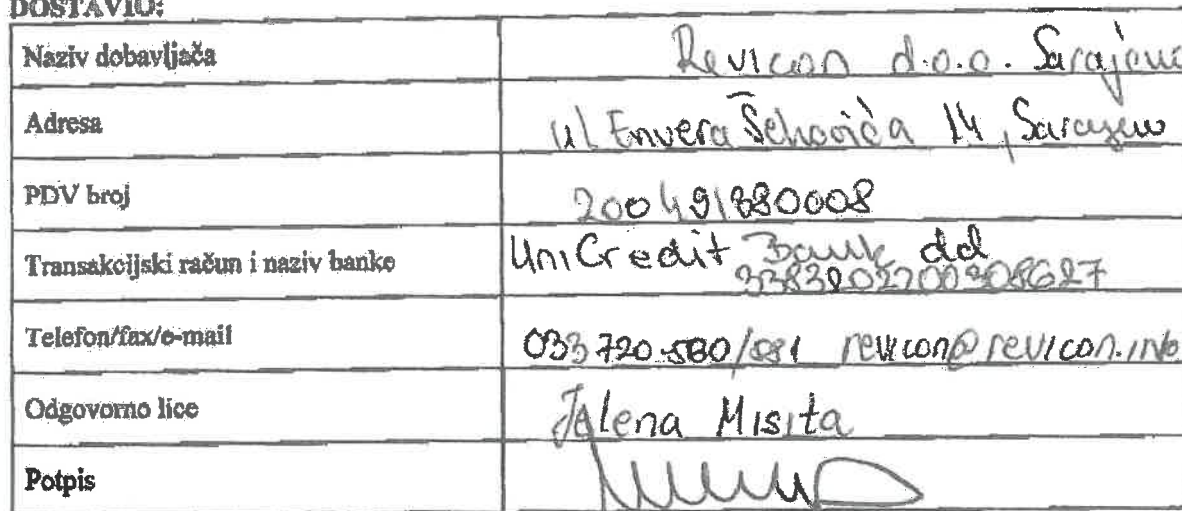 DOSTAVIO:
Naziv dobavljača Revicon d.o.o. Sarajevo
Adresa ul Envera Šehovića 14, Sarajevo
PDV broj 200491380008
Transakcijski račun i naziv banke UniCredit Bank dd
3383202200308627
Telefon/fax/e-mail 033 720-580/581 revicon@revicon.info
Odgovorno lice Jelena Misita
Potpis